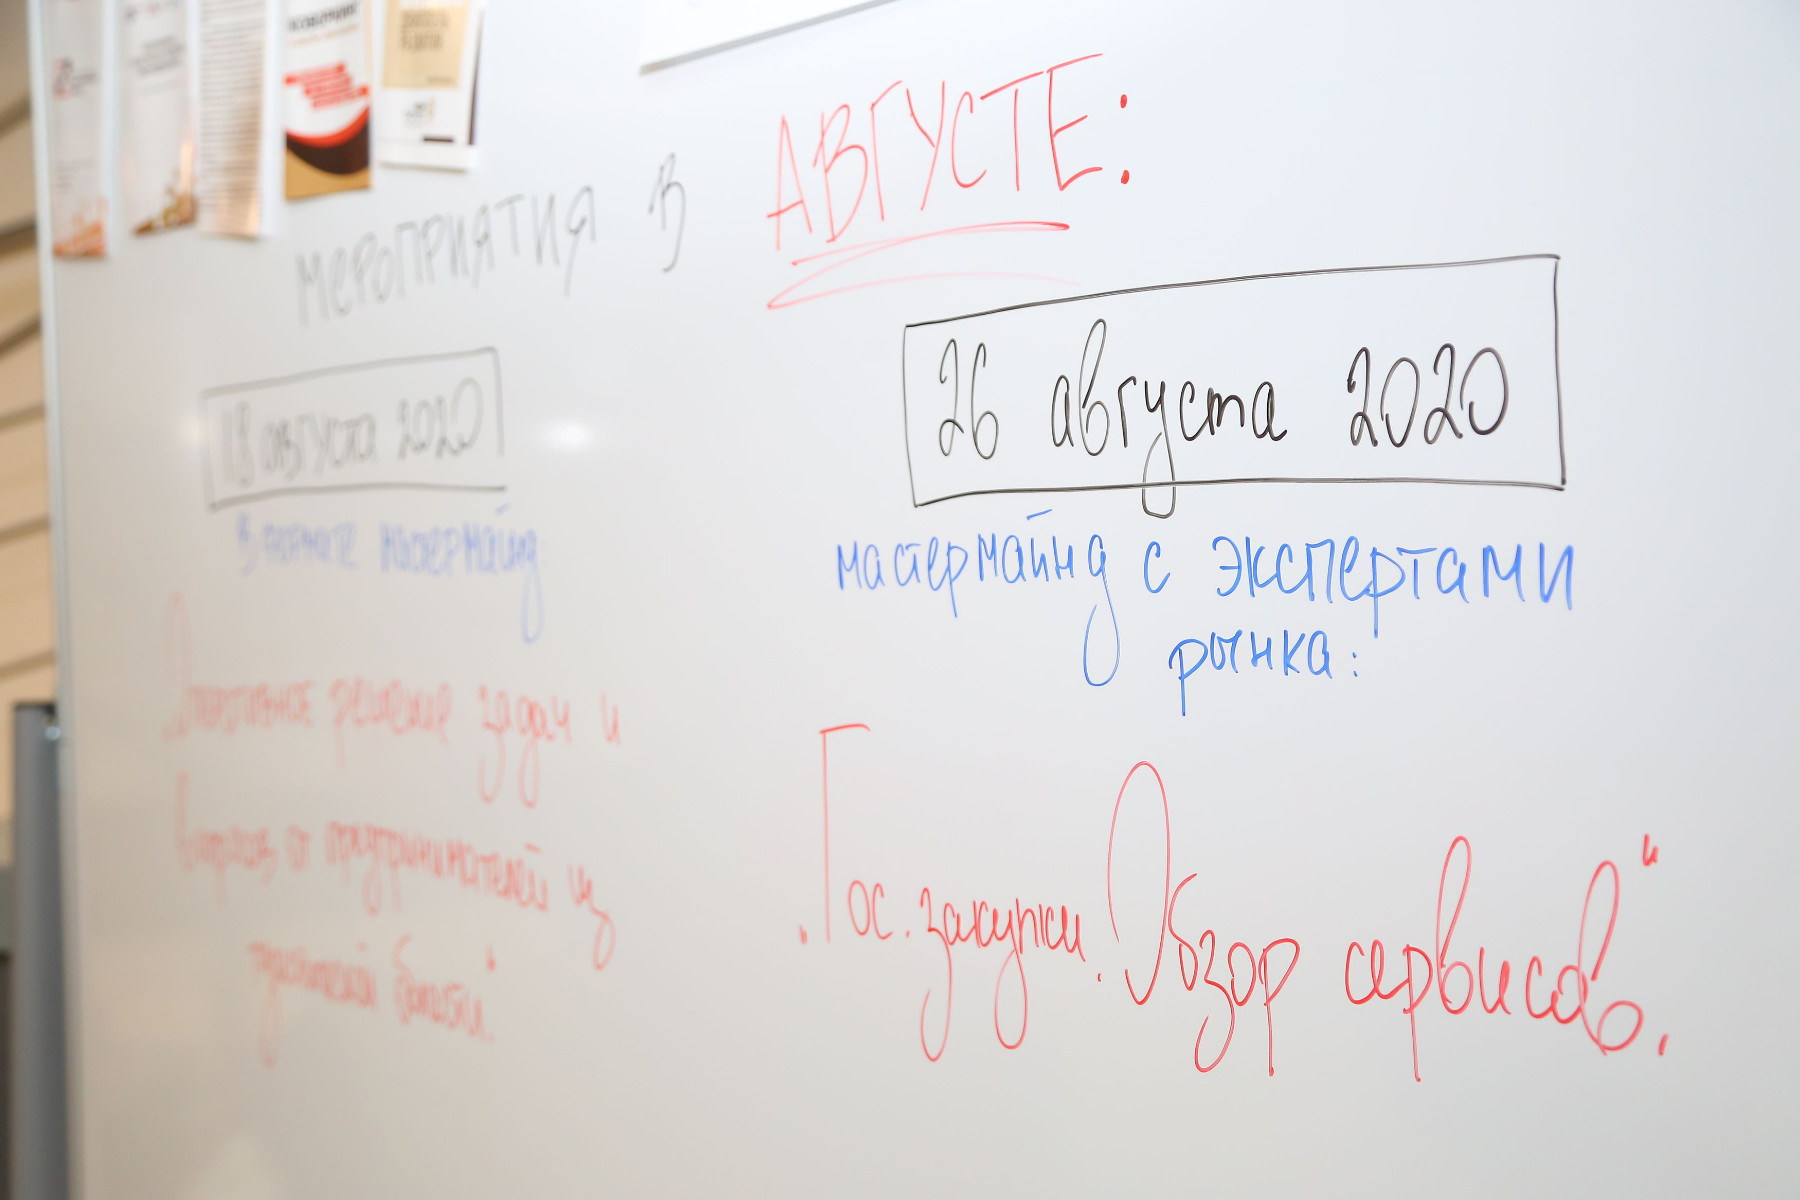 МЕРОПРИЯТИЯ В АВГУСТЕ:
18 августа 2020
В формате мастермайнд
Оперативное решение задач и
вопросов от предпринимателей из
"
26 августа 2020
мастермайнд с экспертами
рынка:
„Гос. закупки. Обзор сервисов".